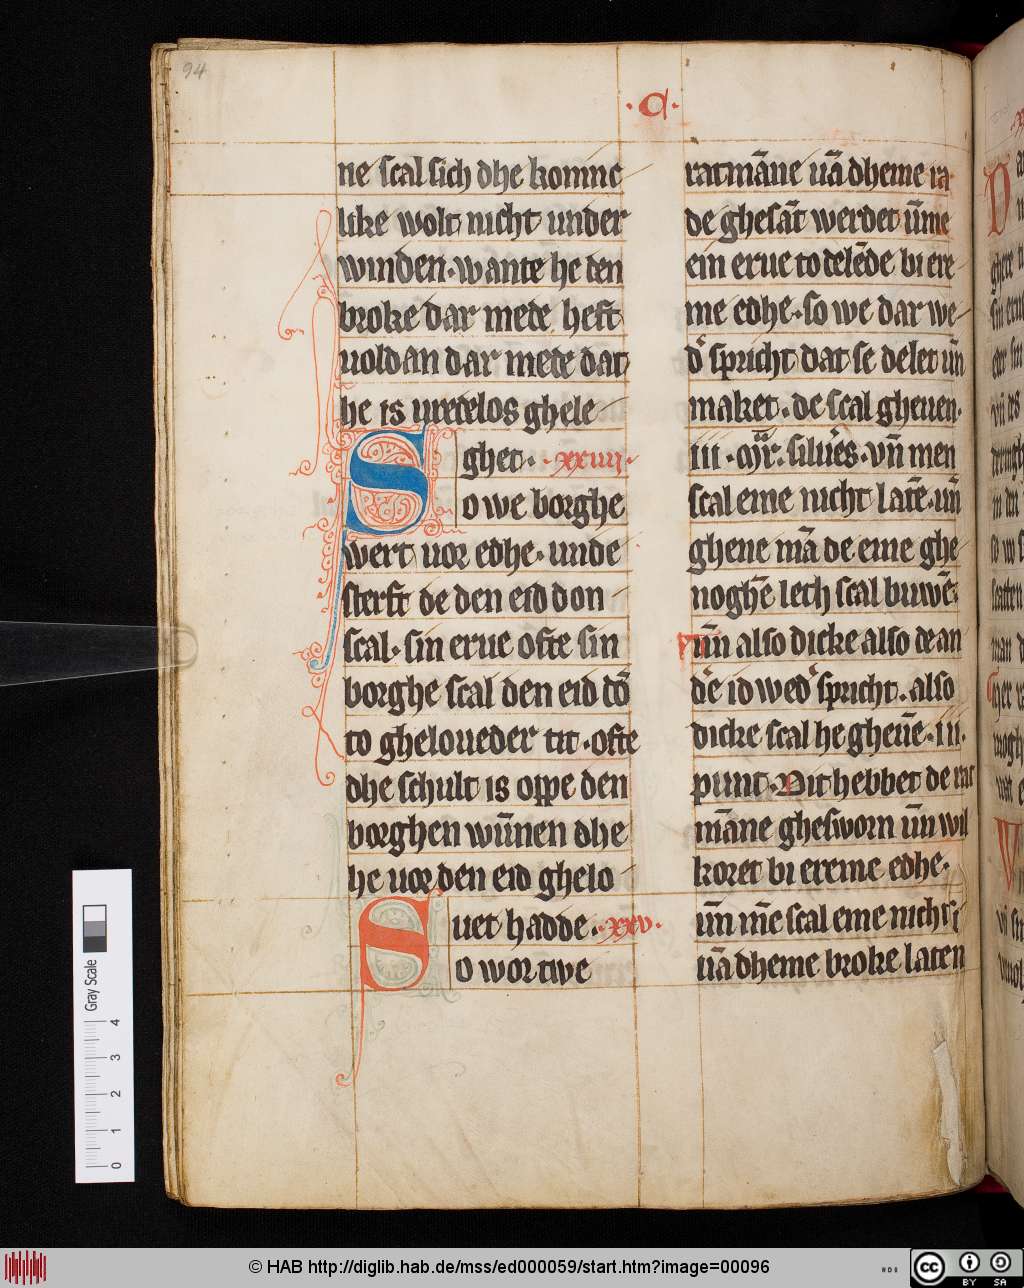 94
·C·
ne scal sich dhe komne
like wolt nicht under
winden·wante he den
broke dar mede heft
uoldan dar mede dat
he is uredelos ghele
ghet· ·xxiiij·
So we borghe
wert uor edhe·unde
sterft de den eid don
scal·sin erue ofte sin
borghe scal den eid dō
to gheloueder tit·ofte
dhe schult is oppe den
borghen wūnen dhe
he uor den eid ghelo
uet hadde·xxv·
So wor twe
ratmāne uā dheme ra
de ghesāt werdet ūme
ein erue to delēde bi ere
me edhe·so we dar we
d᷑ spricht dat se delet un̄
maket·de scal gheuen·
iii·mr᷑·silu᷑es·vn̄ men
scal eme nicht latē·un̄
ghene mā de eme ghe
noghē lech scal buwē·
un̄ also dicke also de an
d᷑e id wed᷑ spricht·also
dicke scal he gheuē·iii·
punt·Dit hebbet de rat
māne ghesworn un̄ wil
koret bi ereme edhe·
un̄ mē scal eme nicht si
uā dheme broke laten
Gray Scale
0 1 2 3 4
© HAB http://diglib.hab.de/mss/ed000059/start.htm?image=00096
cc BY SA